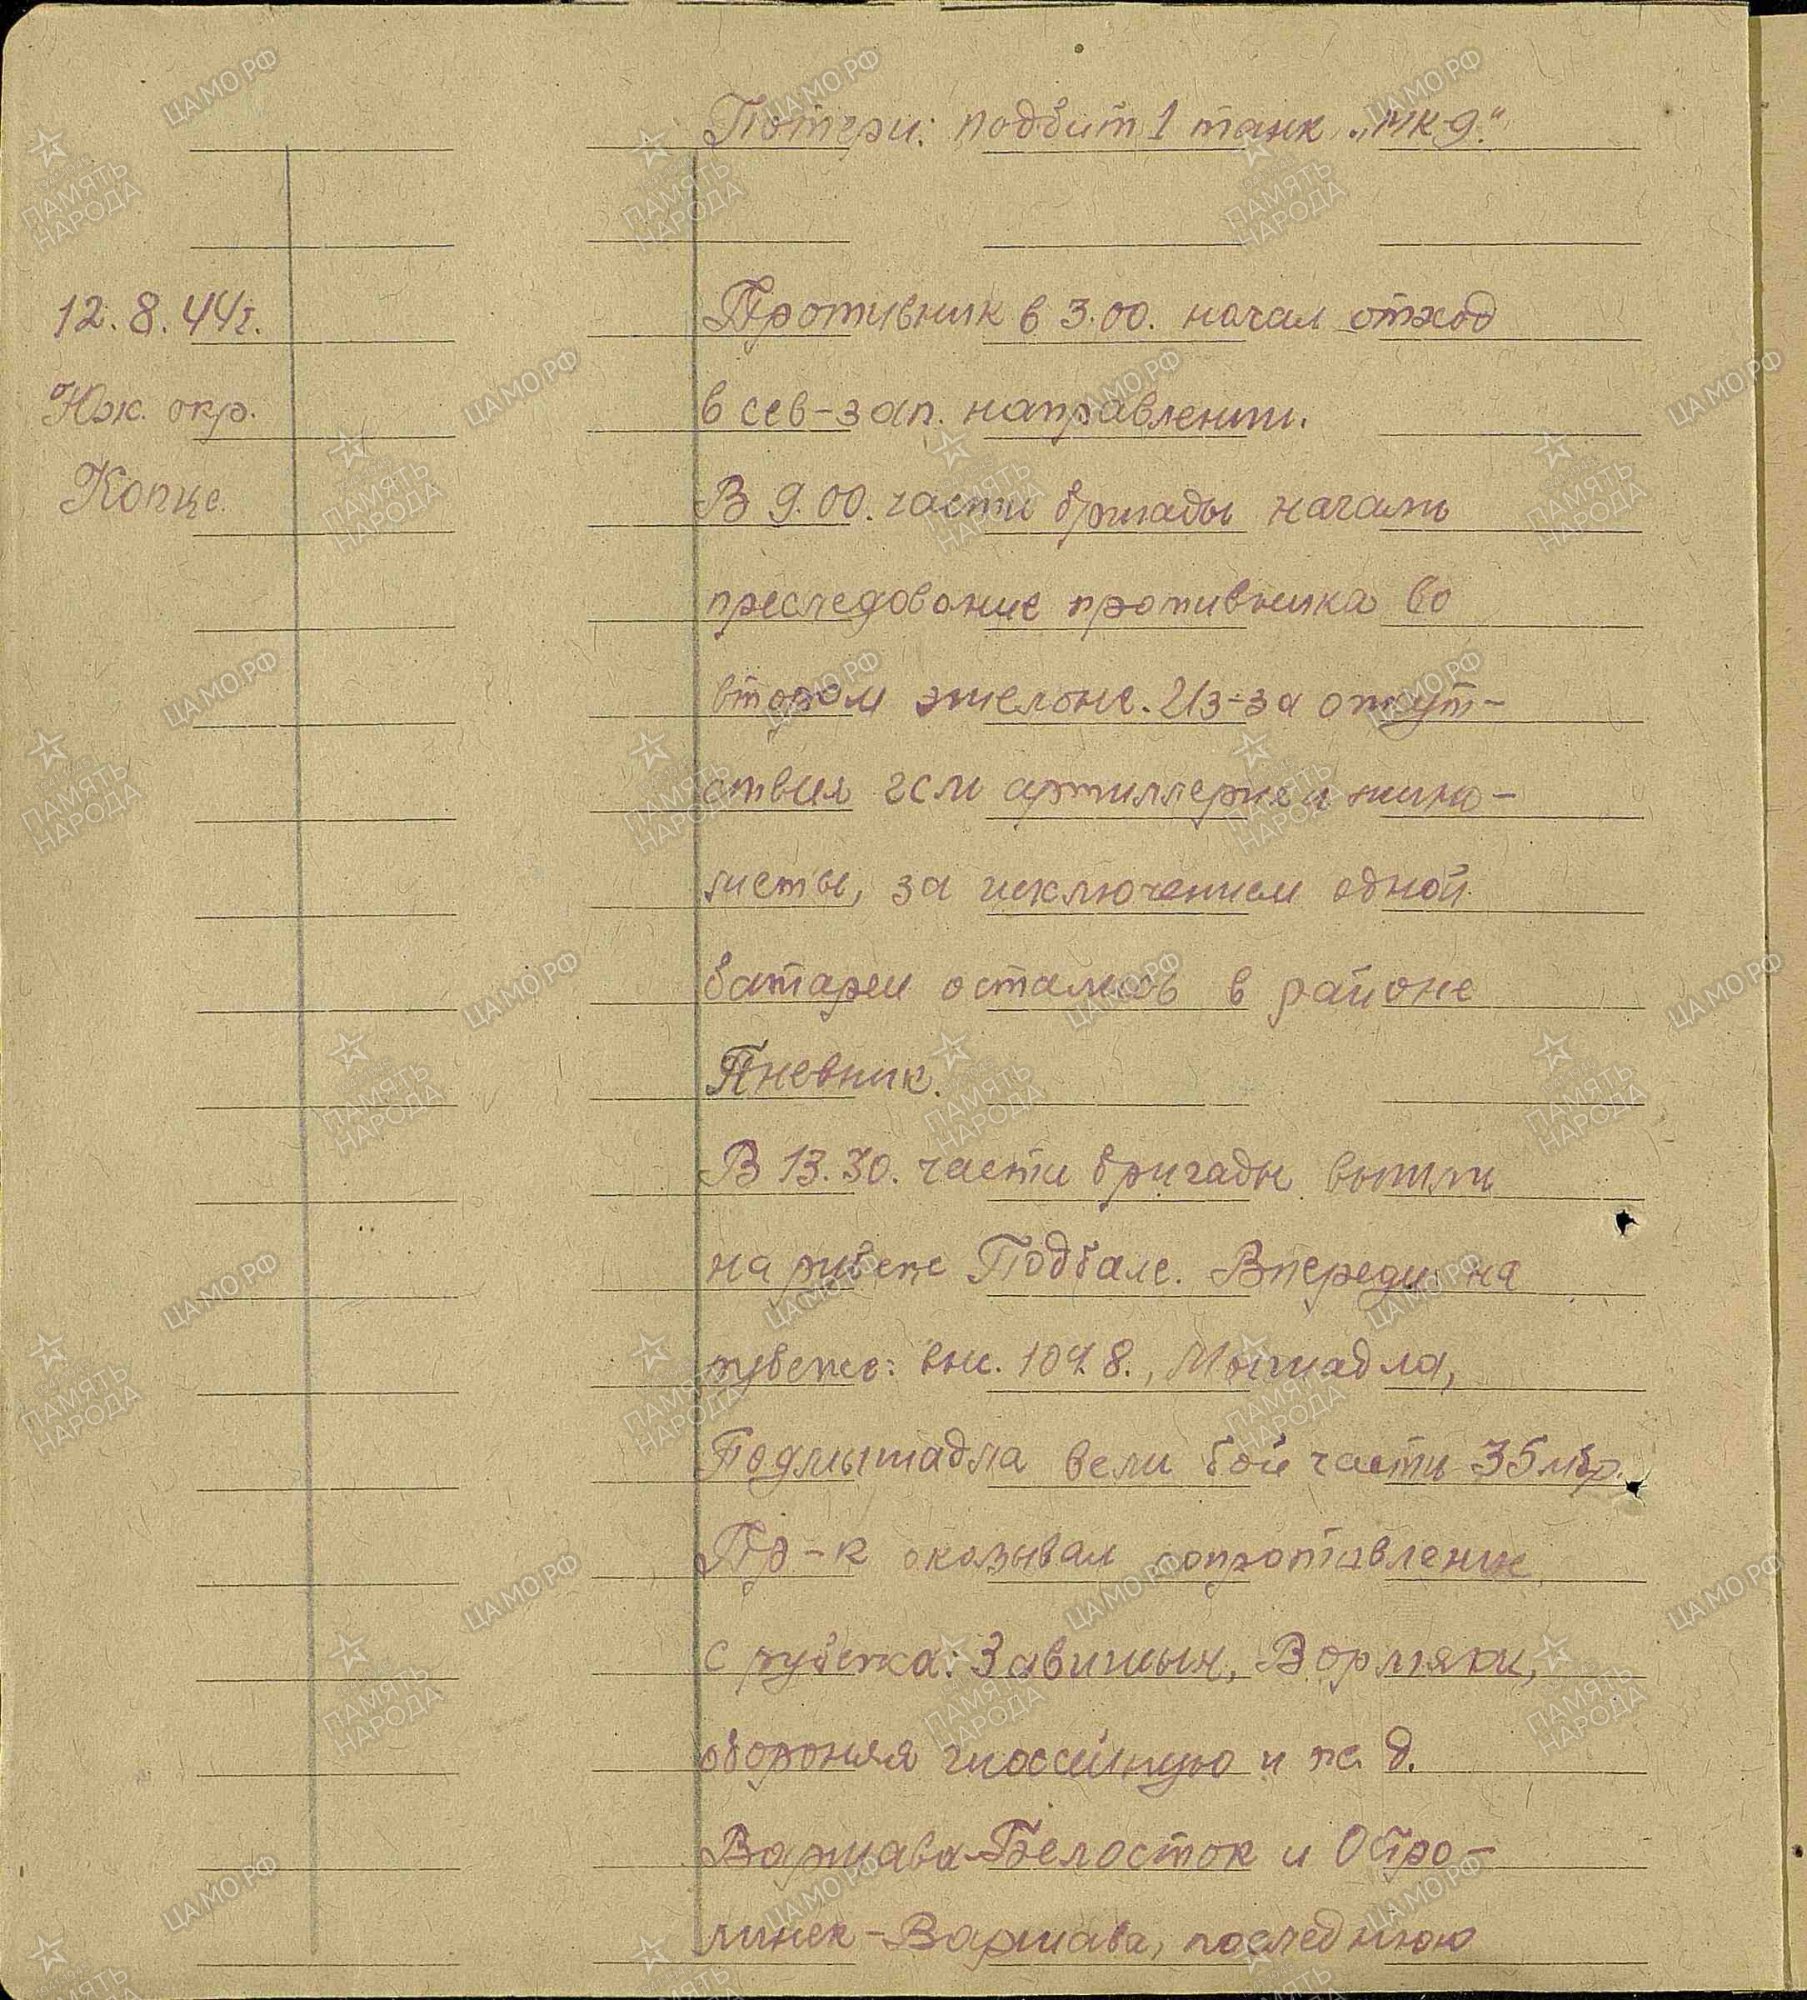 Потери: подбит 1 танк „МК-9."
12.8.44г.
Противник в 3.00. начал отход
Юж. окр.
в сев-зап. направлении.
Копце.
В 9.00. части бригады начали
преследование противника во
втором эшелоне. Из-за отсут-
ствия гсм артиллерия и мино-
меты, за исключением одной
батареи остались в районе
Пневник.
В 13.30. части бригады вышли
на рубеже Подбале. Впереди на
рубеже: выс. 104.8., Мышадла,
Подмышадла вели бой части 35 мбр.
Пр-к оказывал сопротивление
с рубежа: Завишын, Вормяки,
обороняя шоссейную и ж. д.
Варшава-Белосток и Остро-
линек-Варшава, последнюю